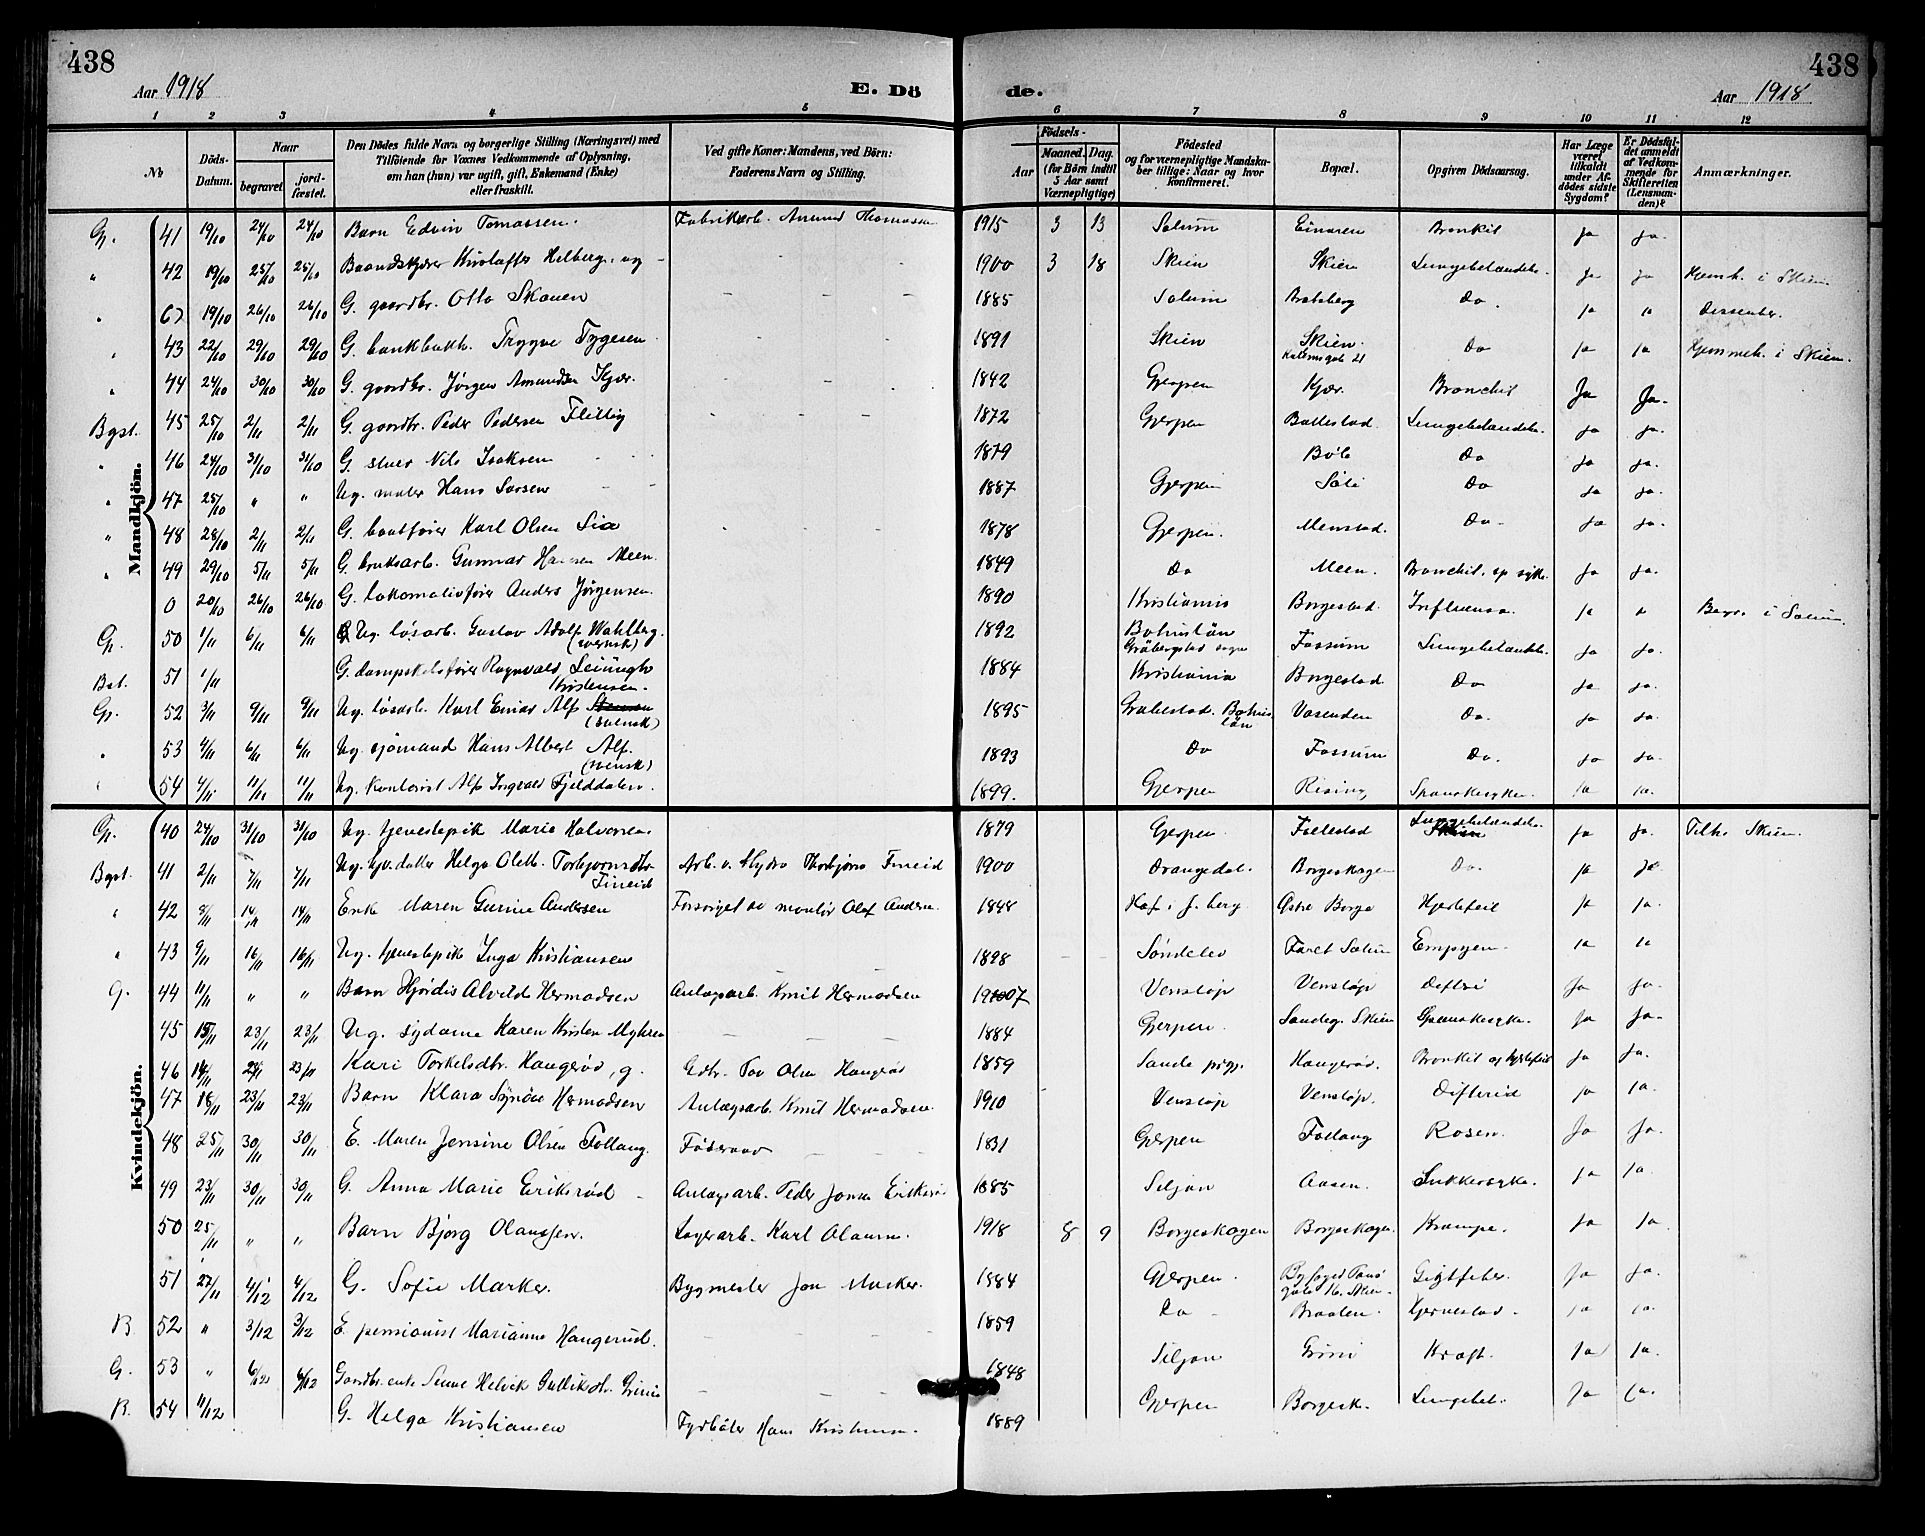 438
438
Aar 1918
E. Dö
de.
Aar 1918
1 2 3 4 5 6 7 8 9 10 11 12
No
Döds-Datum.
Naar
begravet
jord-fæstet.
Den Dödes fulde Navn og borgerlige Stilling (Næringsvei) med
Tilföiende for Voxnes Vedkommende af Oplysning,
om han (hun) var ugift, gift, Enkemand (Enke)
eller fraskilt.
Ved gifte Koner: Mandens, ved Börn:
Faderens Navn og Stilling.
Födsels-
Aar
Maaned. Dag.
(for Börn indtil
5 Aar samt
Værnepligtige)
Födested
og for værnepligtige Mandska-
ber tillige: Naar og hvor
konfirmeret.
Bopæl.
Opgiven Dödsaarsag.
Har Læge
været
tilkaldt
under Af-
dödes sidste
Sygdom?
Er Dödsfal-
det anmeldt
af Vedkom-
mende for
Skifteretten
(Lensman-
den)?
Anmærkninger.
Mandkjön.
Gp. 41 19/10 24/10 24/10 Barn Edvin Tomassen. Fabrikarb. Amund Thomassen 1915 3 13 Solum Einaren Bronkit ja ja.
" 42 19/10 25/10 25/10 Helberg, ug - - - 1900 3 18 Skien Skien Lungebetændelse ja ja Hjemh. i Skien.
" 19/10 26/10 26/10 G. gaardbr. Otto Skauen - - - 1885 Solum Bratsberg Do. ja ja Dissenter.
" 43 22/10 29/10 29/10 G. bankbukh. Trygve Tygesen - - - 1891 Skien Skien. 21 Do ja ja Hjemmeh. i Skien.
" 44 24/10 30/10 30/10 G. gaardbr. Jørgen Amundsen Kjær. - - 1842 Gjerpen Kjær. Bronchit Ja Ja.
Bgst. 45 25/10 2/11 2/11 G. gaardbr. Peder Pedersen Flittig - - - 1872 Gjerpen Ballestad Lungebetændelse ja ja.
" 46 24/10 31/10 31/10 G. stuer Nils Isaksen - - 1879 Bøle Do ja ja.
" 47 25/10 " " Ug. maler Hans Larsen - - 1887 Gjerpen Do ja ja.
" 48 28/10 2/11 2/11 G. baatfører Karl Olsen Lia - - 1878 Gjerpen. Menstad. Do - ja ja.
" 49 29/10 5/11 5/11 G. bruksarb. Gunnar Hansen Meen. 1849 Do Meen. Bronchit. ja ja.
0 20/10 26/10 26/10 G. lokomotivfører Anders Jørgensen. 1890 Kristiania Borgestad. Influensa. ja Begr. i Solum.
Gp. 50 1/11 6/11 6/11 Ug. løsarb. Gustav Adolf Wahlberg. (svensk) 1892 Bohuslän sogn Fossum Lungebetændelse. ja ja.
Bst. 51 1/11 G. dampskibsfører Ragnvald Kristensen. 1884 Kristiania Borgestad Do ja ja.
Gp. 52 3/11 9/11 9/11 Ug. løsarb. Karl Einar Alf (svensk) 1895 Bohuslän Vasenden Do. ja ja.
" 53 4/11 6/11 6/11 Ug. sjømand Hans Albert Alf. (svensk) 1893 Do Fossum Do. ja ja.
" 54 4/11 11/11 11/11 Ug. kontorist Alf Ingvald Fjelddalen. 1899. Gjerpen Rising Spanskesyke. ja ja.
Kvindekjön.
Gp. 40 24/10 31/10 31/10 Ug. tjenestepik Marie Halvorsen. 1879 Gjerpen Follestad Lungebetændelse ja ja. Tilh. Skien.
Bgst. 41 2/11 7/11 7/11 Ug. hjv. datter Helga Oletb. Torbjørnsdtr Fineid Arb. v. Hydro Thorbjørn Fineid 1900 Drangedal. Borgeskogen Do. ja ja
" 42 8/11 14/11 14/11 Enke Maren Gurine Andersen Forsørget av montør Olaf Andersen. 1848 Østre Borge Hjertefeil ja ja.
" 43 9/11 16/11 16/11 Ug. tjenestepik Inga Kristiansen - - 1898 - - Søndeled Faret Solum Empyem - ja ja
G. 44 11/11 " " Barn Hjördis Alvilde Hermodsen Anlægsarb. Knut Hermodsen 1907 Venstøp Venstøp Difteri ja ja.
45 15/11 23/11 23/11 Ug. sydame Karen Kirsten Myhren - - - 1884 Gjerpen. Skien Spanskesyke. ja ja.
46 14/11 23/11 Kari Torkelsdtr. Haugerød, g. Gdbr. Tov Olsen Haugerød 1859 Sande prgj. Haugerød. Bronkit og hjertefeil ja ja.
47 18/11 23/11 23/11 Barn Klara Synöve Hermodsen Anlægsarb. Knut Hermodsen. 1910 Venstøp Venstøp. Difterid ja ja.
48 25/11 30/11 30/11 E. Maren Jensine Olsen Follaug. Føderaad - - 1831 Gjerpen Follaug Rosen. Ja Ja.
49 23/11 30/11 30/11 G. Anna Marie Eriksrød - Anlægsarb. Peder Jonsen Eriksrød 1885 Siljan Aasen. Sukkersyke. ja ja.
50 25/11 " " Barn Bjørg Olaussen. Lagerarb. Karl Olaussen. 1918 8 9 Borgeskogen Borgeskogen. Krampe. ja ja.
51 27/11 4/12 4/12 G. Sofie Marker. Bygmester Jon Marker. 1884 Gjerpen. gate 16. Skien - Gigtfeber. ja ja.
B 52 " 3/12 3/12 E. pensionist Marianne Haugerud. - - - 1859 Do - Braaten. - ja ja.
G. 53 " 6/12 6/12 Gaardbr. enke Gullikdtr. Grini - - - 1848 Siljan Grini Kræft. ja ja.
B. 54 11/12 G. Helga Kristiansen Fyrbøter Hans Kristiansen. 1889 Gjerpen Borgesk. Lungebet. ja ja.